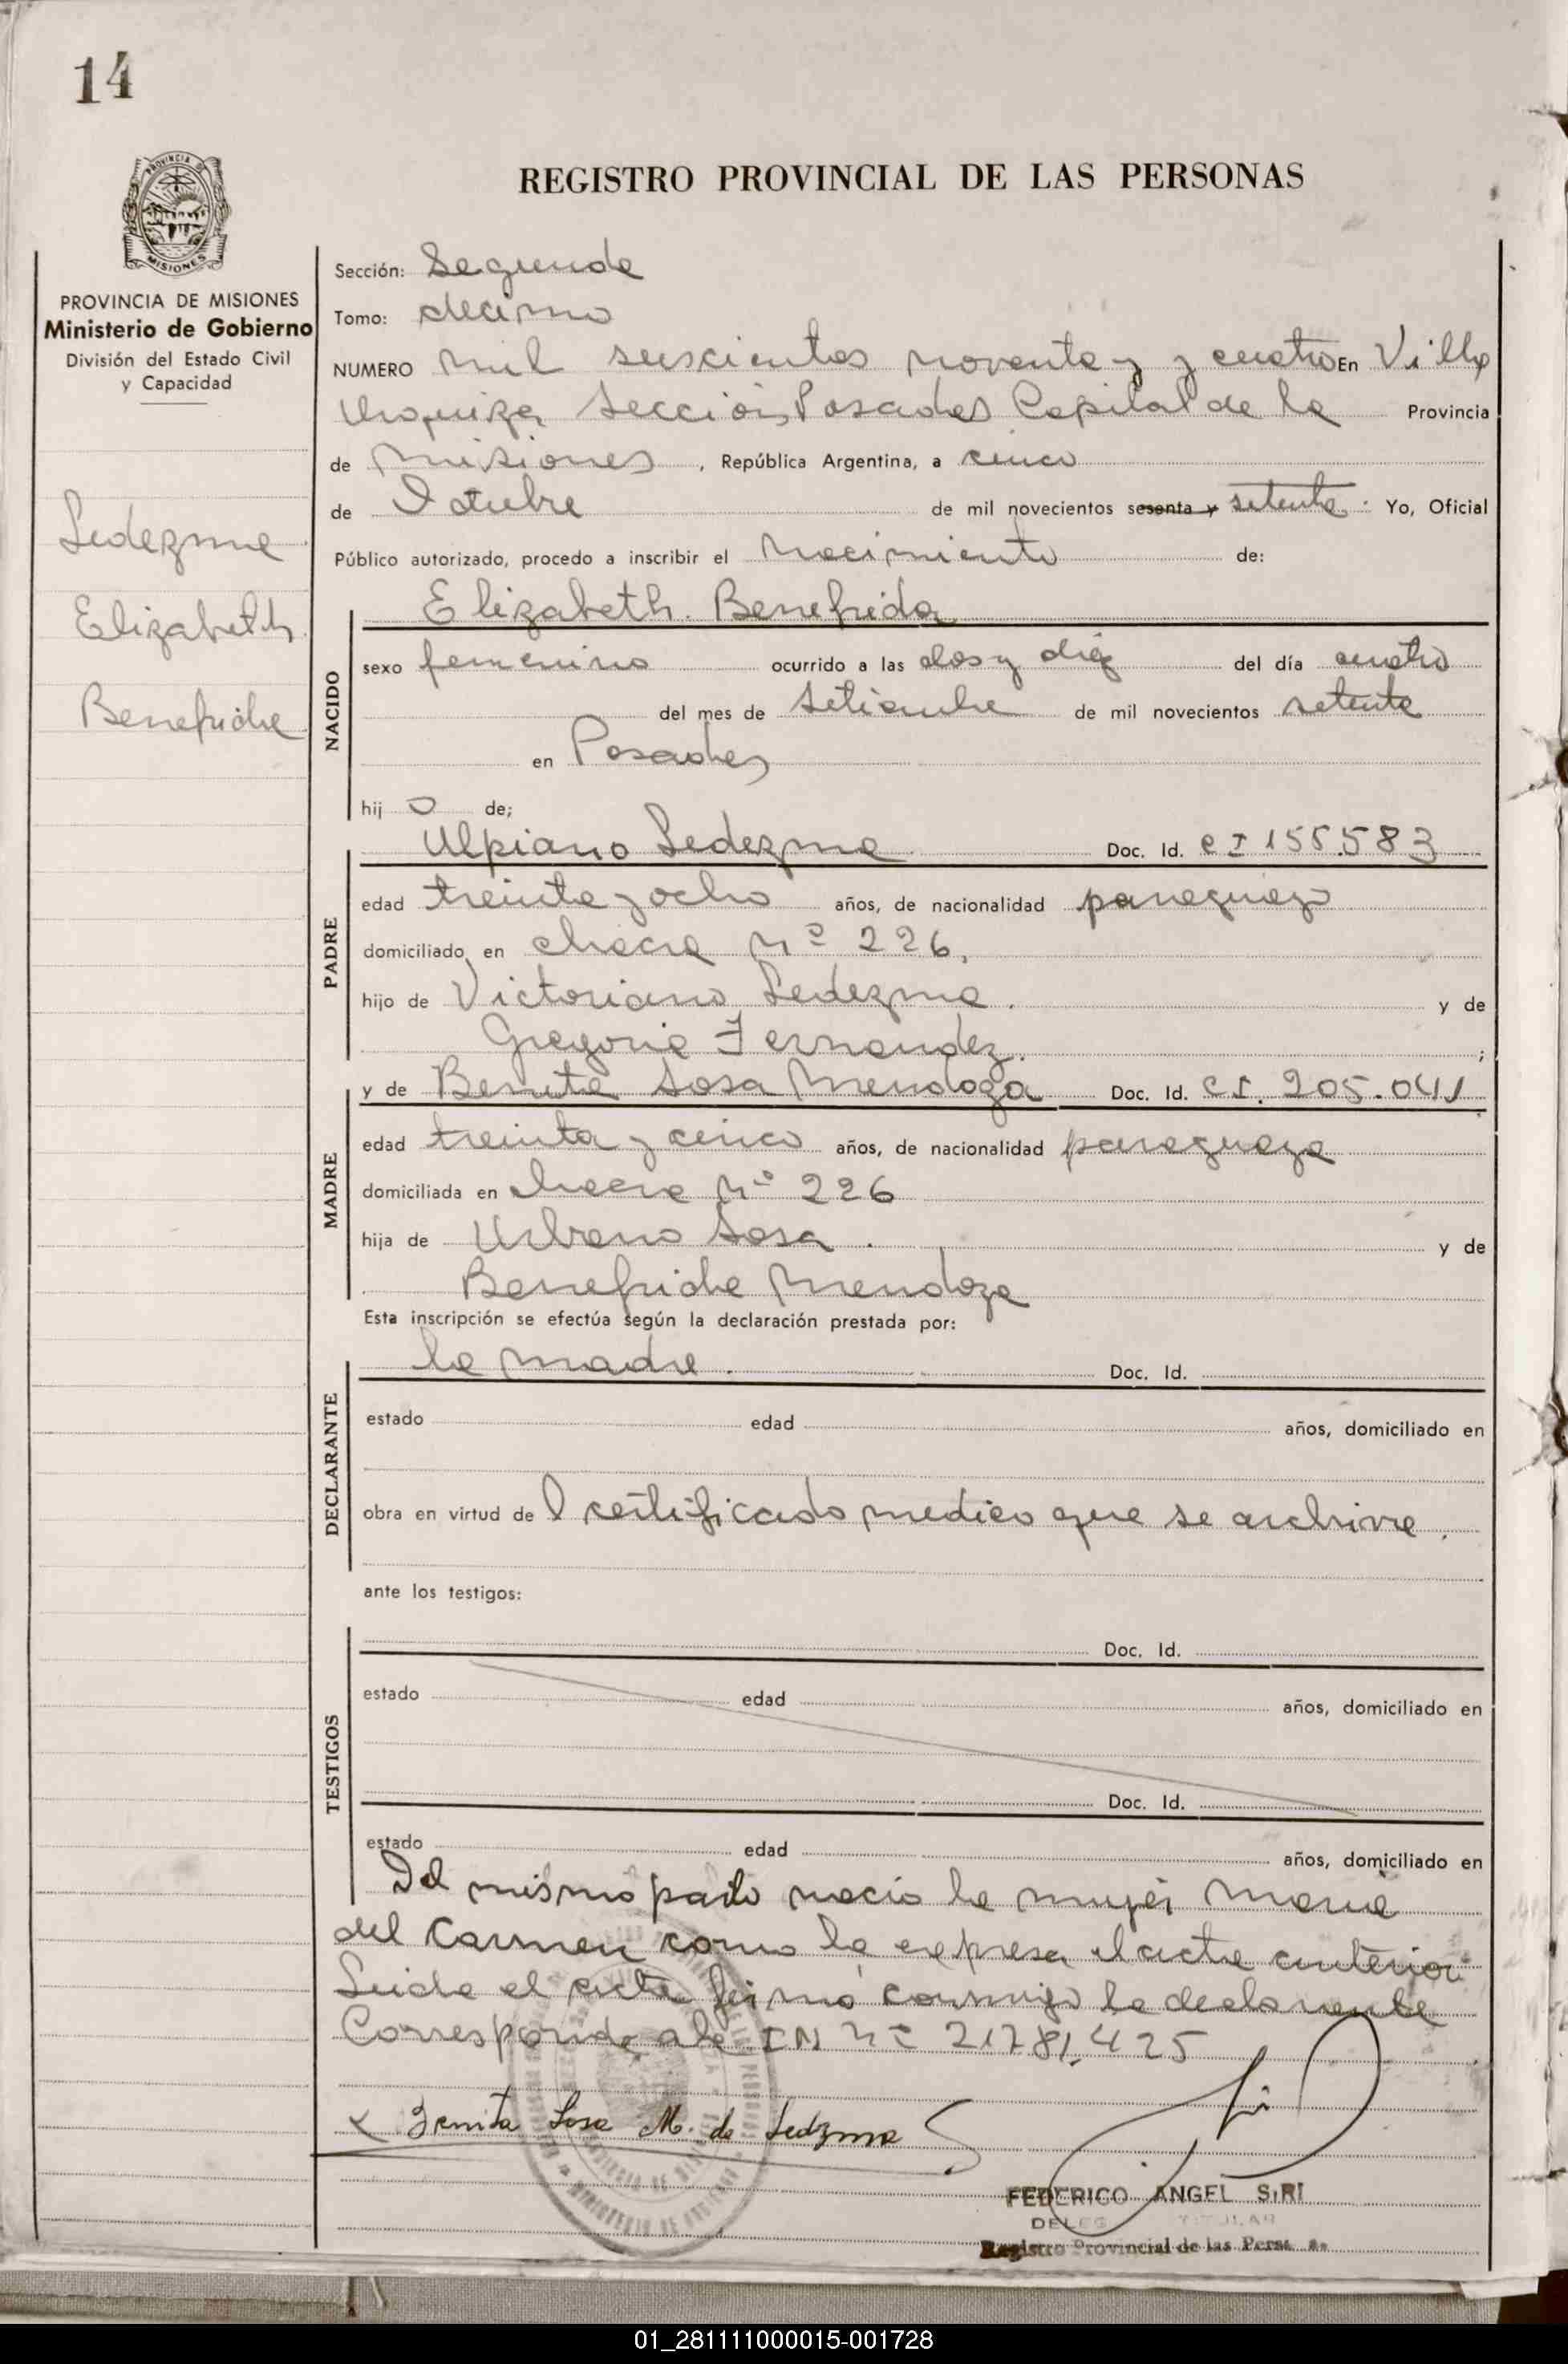 14
REGISTRO PROVINCIAL DE LAS PERSONAS
PROVINCIA DE MISIONES
Ministerio de Gobierno
División del Estado Civil
y Capacidad
Ledezma
Elizabeth
Benefrida
Sección: Segunda
Tomo: decimo
NUMERO mil seiscientos noventa y cuatro En Villa
Urquiza Seccion Posadas Capital de la Provincia
de Misiones, República Argentina, a cinco
de Octubre de mil novecientos sesenta y setenta. Yo, Oficial
Público autorizado, procedo a inscribir el Nacimiento de:
Elizabeth Benefrida
NACIDO
sexo femenino ocurrido a las dos y diez del día cuatro
del mes de Setiembre de mil novecientos setenta
en Posadas
hij o de;
Ulpiano Ledezma Doc. Id. CI 155.583
PADRE
edad treinta y ocho años, de nacionalidad paraguayo
domiciliado en chacra Nº 226,
hijo de Victoriano Ledezma. y de
Gregoria Fernandez. ;
y de Benita Sosa Mendoza Doc. Id. CI. 205.041
MADRE
edad treinta y cinco años, de nacionalidad paraguaya
domiciliada en chacra Nº 226
hija de Urbano Sosa. y de
Benefrida Mendoza
Esta inscripción se efectúa según la declaración prestada por:
la madre. Doc. Id.
DECLARANTE
estado edad años, domiciliado en
obra en virtud de l certificado medico que se archiva.
ante los testigos:
Doc. Id.
TESTIGOS
estado edad años, domiciliado en
Doc. Id.
estado edad años, domiciliado en
Del mismo parto nació la mujer Maria
del Carmen como la expresa el acta anterior
Leida el acta firmó conmigo la declarante
Corresponde ale IN Nº 21.781.425
x Benita Sosa M. de Ledzma
FEDERICO ANGEL SIRI
TITULAR
Registro Provincial de las Pers
01_281111000015-001728